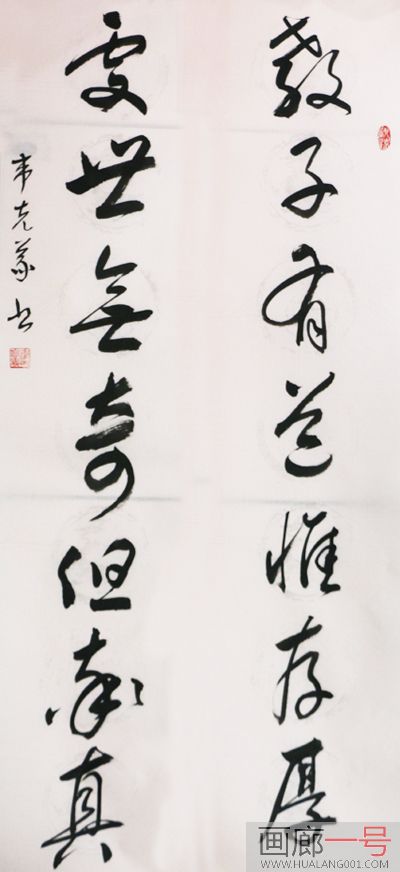 教子有道惟存厚
處世無奇但率真
韦克义书
画廊一号
WWW.HUALANG001.COM